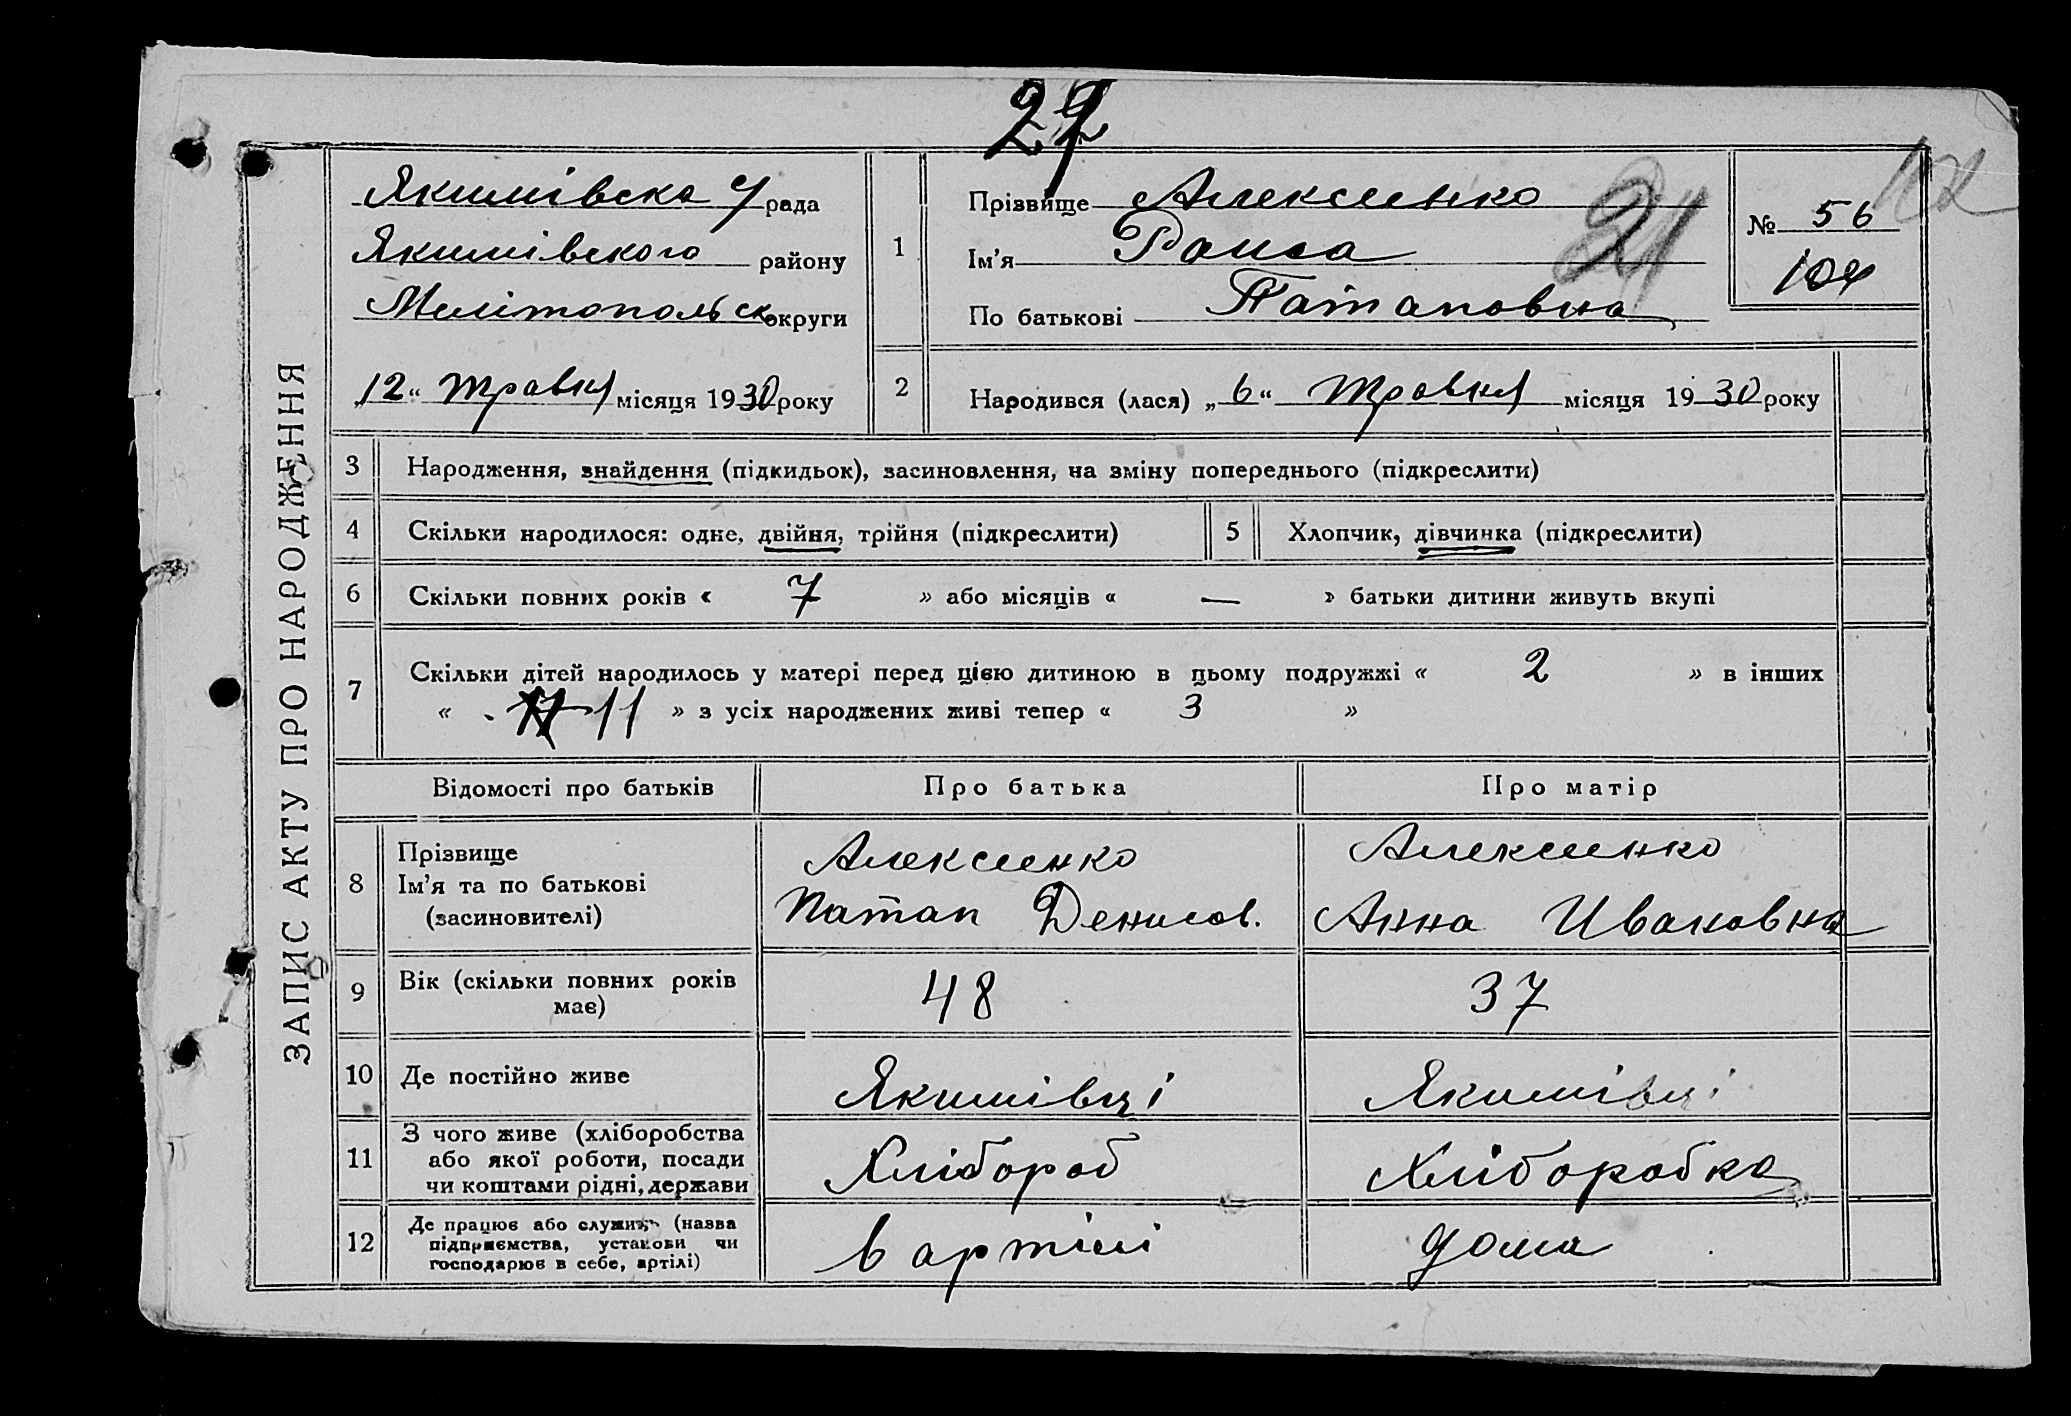 27
ЗАПИС АКТУ ПРО НАРОДЖЕННЯ
Якимівска рада
Якимівского району
Мелітопольск округи
„12“ травня місяця 1930 року
1
Прізвище Алексеенко
Ім’я Раиса
По батькові Патаповна
21
№ 56
104
102
2
Народився (лася) „6“ травня місяця 1930 року
3 Народження, знайдення (підкидьок), засиновлення, на зміну попереднього (підкреслити)
4 Скільки народилося: одне, двійня, трійня (підкреслити)
5 Хлопчик, дівчинка (підкреслити)
6 Скільки повних років « 7 » або місяців « — » батьки дитини живуть вкупі
7 Скільки дітей народилось у матері перед цією дитиною в цьому подружжі « 2 » в інших
« 11 » з усіх народжених живі тепер « 3 »
Відомості про батьків Про батька Про матір
8 Прізвище
Ім’я та по батькові
(засиновителі)
Алексеенко
Патап Денисов.
Алексеенко
Анна Ивановна
9 Вік (скільки повних років
має)
48 37
10 Де постійно живе Якимівці Якимівці
11 З чого живе (хліборобства
або якої роботи, посади
чи коштами рідні, держави
Хлібороб Хліборобка
12 Де працює або служить (назва
підприємства, установи чи
господарює в себе, артілі)
в артілі дома